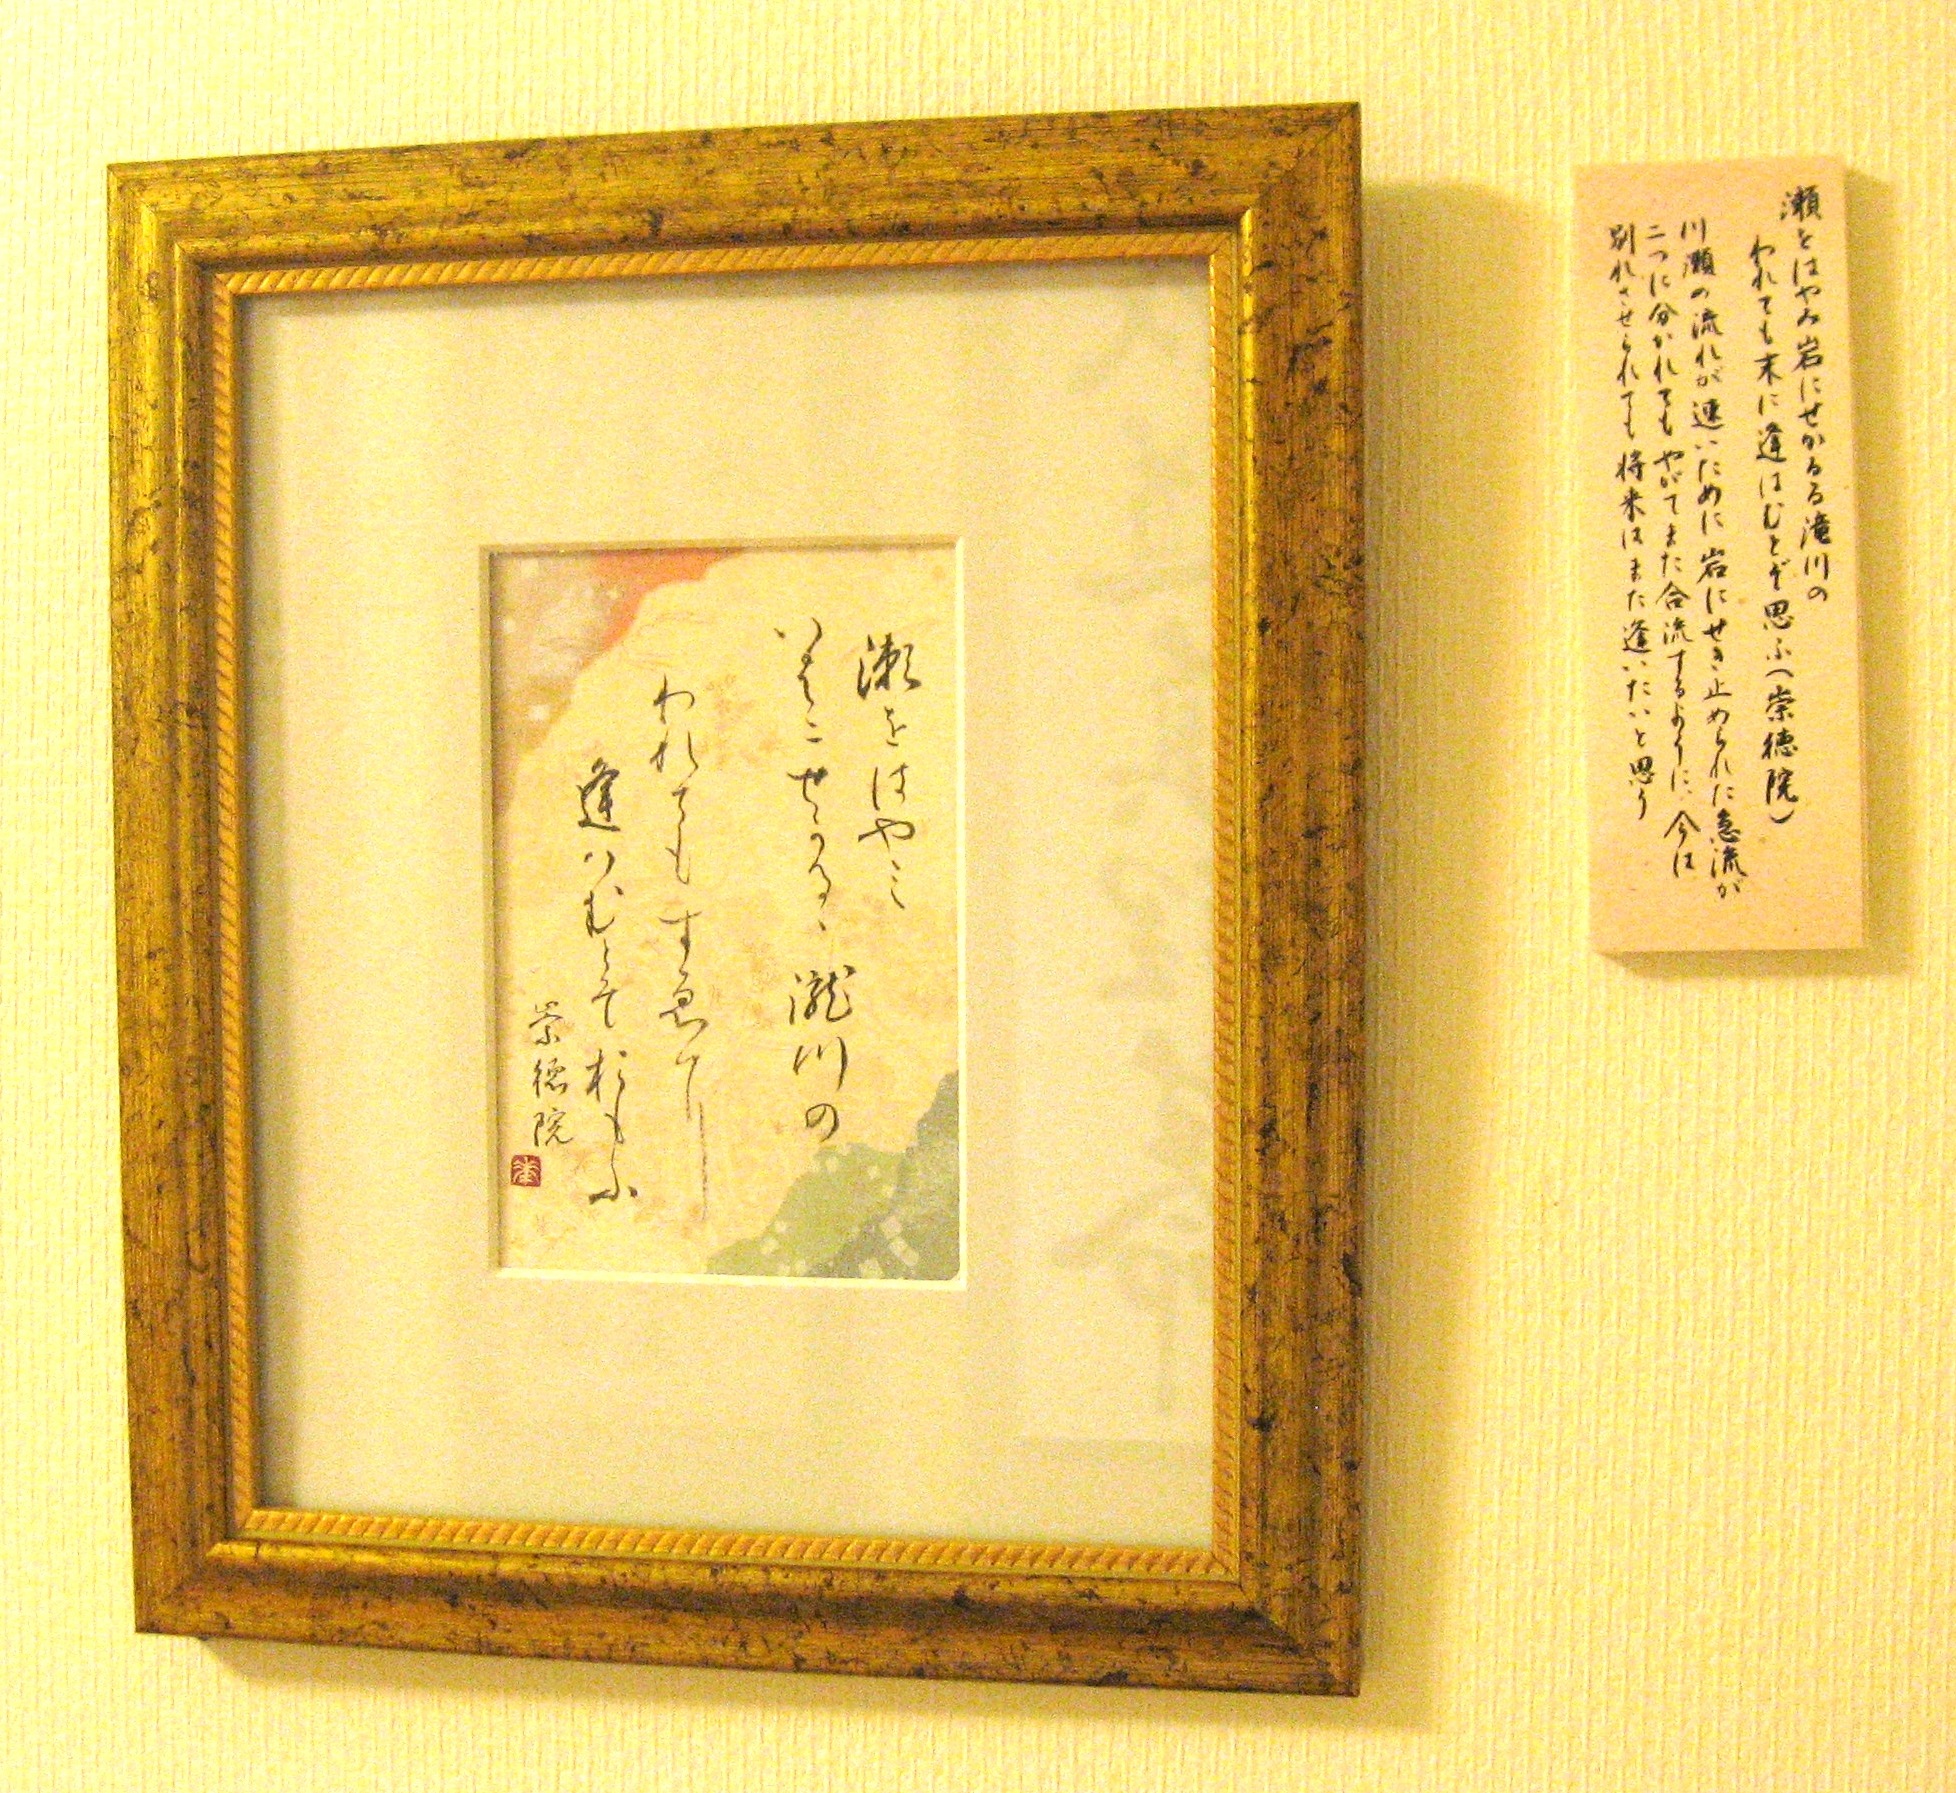 瀬をはやみ岩にせかるる滝川の
われても末に逢はむとぞ思ふ(崇徳院)
川瀬の流れが速いために岩にせき止められた急流が
二つに分かれてもやがてまた合流するように、今は
別れさせられても将来はまた逢いたいと思う
瀬をはやミ
いはニせかるゝ瀧川の
われてもすゑに
逢ハむとそおもふ
崇徳院